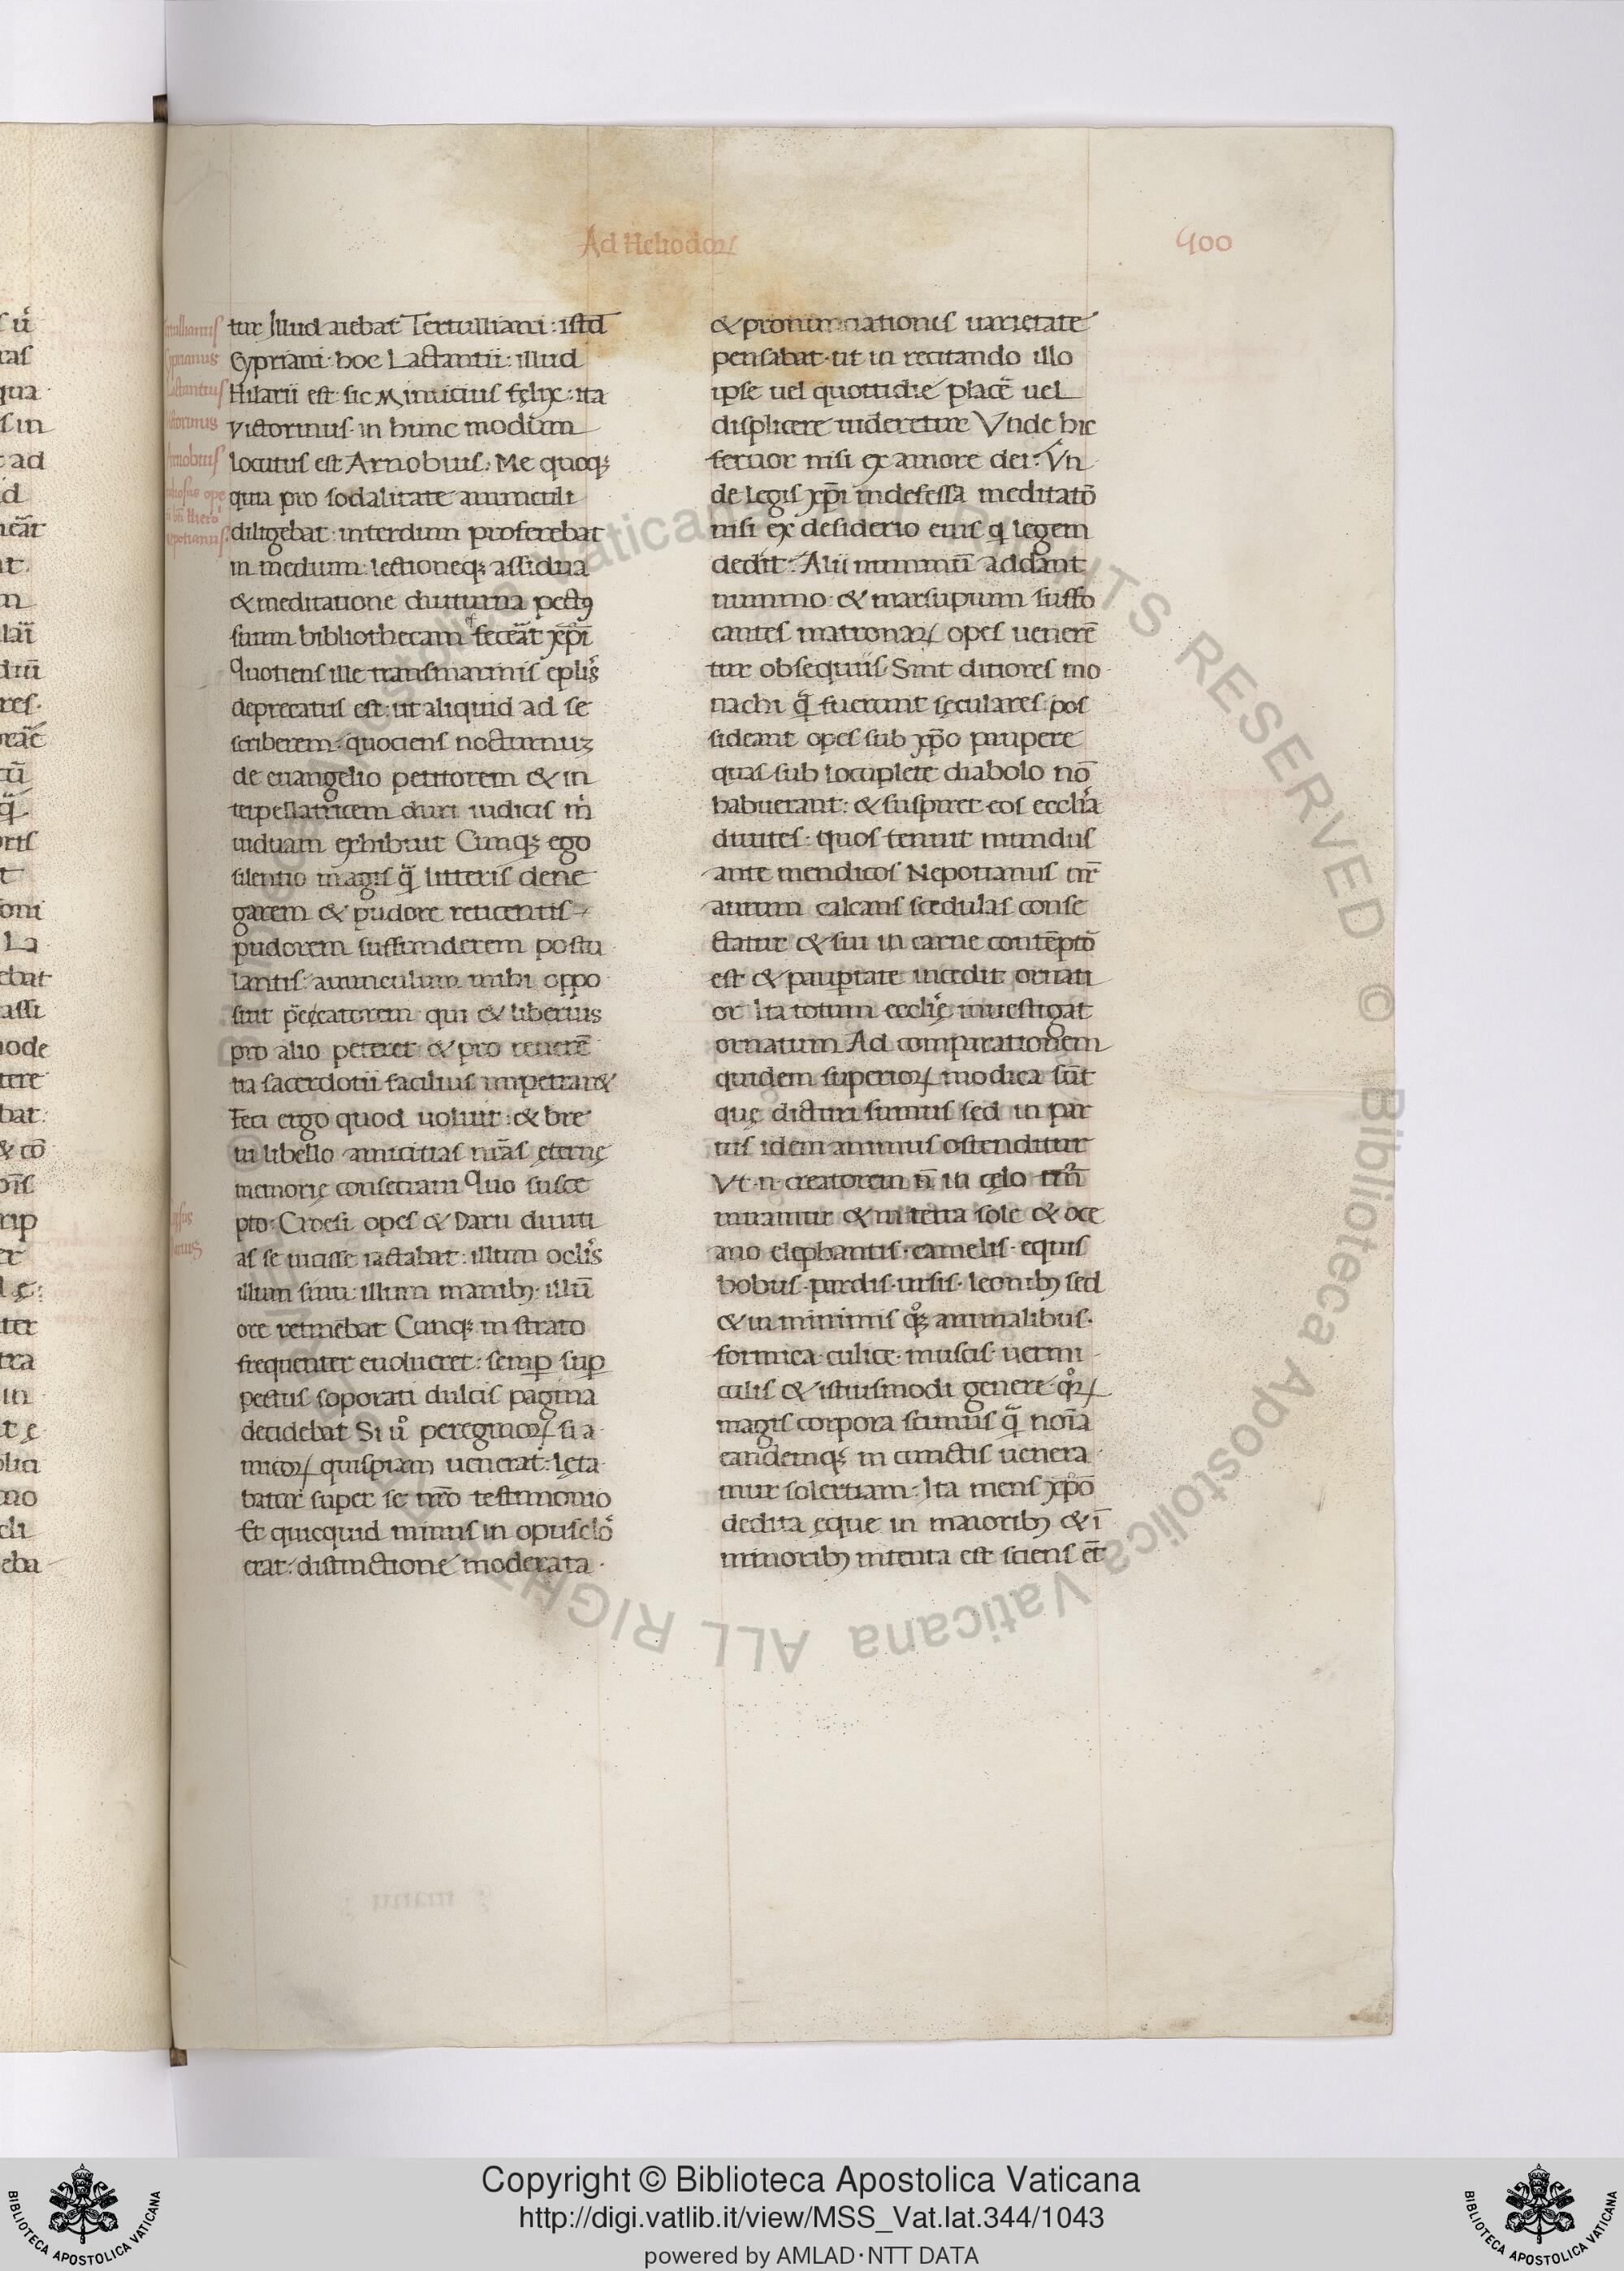 Ad Heliodoꝝ
400
tur Illud aiebat Tertulliani: istđ
Cypriani: hoc Lactantii: illud
Hilarii est: sic Minucius fęlix: ita
victorinus: in hunc modum
locutus est Arnobius: Me quoqꝫ
quia pro sodalitate auunculi
diligebat: interdum proferebat
in medium: lectioneqꝫ assidua
& meditatione diuturna pectꝯ
suum bibliothecam feceāt xp̄i
Quotiens ille transmarinis eplis
deprecatus est: ut aliquid ad se
scriberem: quociens nocturnuꝫ
de euangelio petitorem & in
terpellatricem duri iudicis m̊
uiduam exhibuit Cunqꝫ ego
silentio magis q̄ litteris dene
garem & pudore reticentis
pudorem suffunderem postu
lantis: auunculum mihi oppo
suit peccatorem: qui & liberius
pro alio peteret: & pro reuerē
tia sacerdotii facilius impetrar&
Feci ergo quod uoluit: & bre
ui libello amicitias nr̄as ęternę
memorię consecraui Quo susce
pto: Croesi opes & Darii diuiti
as se uicisse iactabat: illum oclis
illum sinu: illum manibꝯ illū
ore retinebat Cunqꝫ in strato
frequenter euolueret: semꝑ suꝑ
pectus soporati dulcis pagina
decidebat Si ů peregrinoꝝ si a
micoꝝ quispiam uenerat: lęta
batur super se nr̄o testimonio
Et quicquid minus in opusclo
erat: distinctione moderata
& pronunciationis uarietate
pensabat: ut in recitando illo
ipse uel quottidie placē uel
displicere uideretur Vnde hic
feruor nisi ex amore dei: Vn
de legis xp̄i indefessa meditatō
nisi ex desiderio eius q̇ legem
dedit: Alii nummū addant
nummo: & marsupium suffo
cantes matronaꝝ opes uenerē
tur obsequiis: Sint ditiores mo
nachi q̄ fuerunt sęculares: pos
sideant opes sub xp̄o paupere
quas sub locuplete diabolo nō
habuerant: & suspiret eos ecclia
diuites: quos tenuit mundus
ante mendicos Nepotianus nr̄
aurum calcans scedulas conse
ctatur & sui in carne contēptō
est & pauꝑtate incedit ornati
or Ita totum ecclię inuestigat
ornatum Ad comparationem
quidem superioꝝ modica sūt
quę dicturi sumus sed in par
uis idem animus ostenditur
Vt .n. creatorem n̄ in cęlo trm̄
miramur & in terra sole & oce
ano elephantis: camelis: equis
bobus: pardis: ursis: leonibꝯ sed
& in minimis q̊qꝫ animalibus:
formica: culice: muscis: uermi
culis & istiusmodi genere: q̊ꝝ
magis corpora scimus q̄ noīa
eandemqꝫ in cunctis uenera
mur solertiam: Ita mens xp̄o
dedita ęque in maioribꝯ & ī
minoribꝯ intenta est sciens eт̄
Copyright © Biblioteca Apostolica Vaticana
http://digi.vatlib.it/view/MSS_Vat.lat.344/1043
powered by AMLAD·NTT DATA